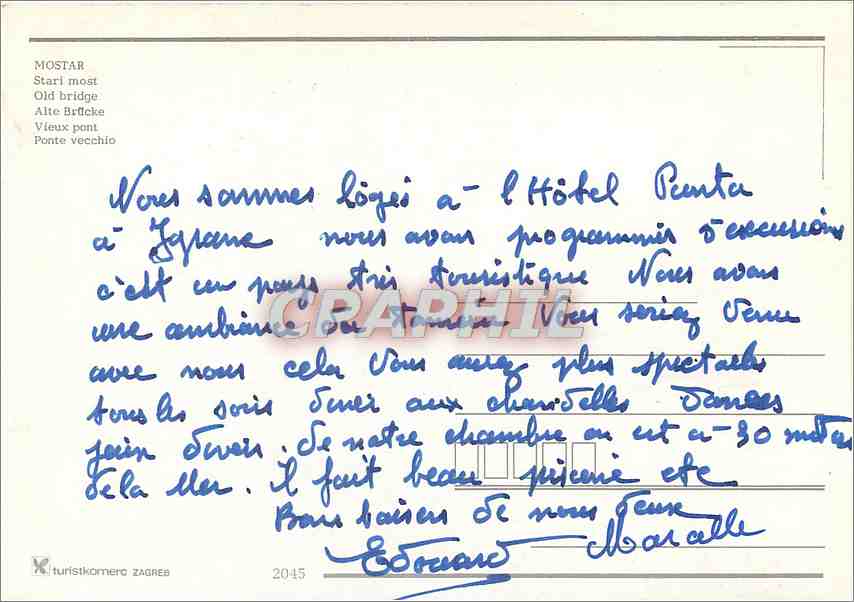 MOSTAR
Stari most
Old bridge
Alte Brücke
Vieux pont
Ponte vecchio
Nous sommes logés à l'Hôtel Punta
à Igrane nous avons programmés 5 excursions
c'est un pays très touristique Nous avons
une ambiance du tonnerre Vous seriez venu
avec nous cela Vous aurez plus spectacles
tous les soirs diner aux chandelles Danses
. de notre chambre on est à 30 mètres
de la Mer. il fait beau piscine etc
Bons baisers de nous deux
Edouard Marcelle
CPAPHIL
turistkomerc ZAGREB
2045